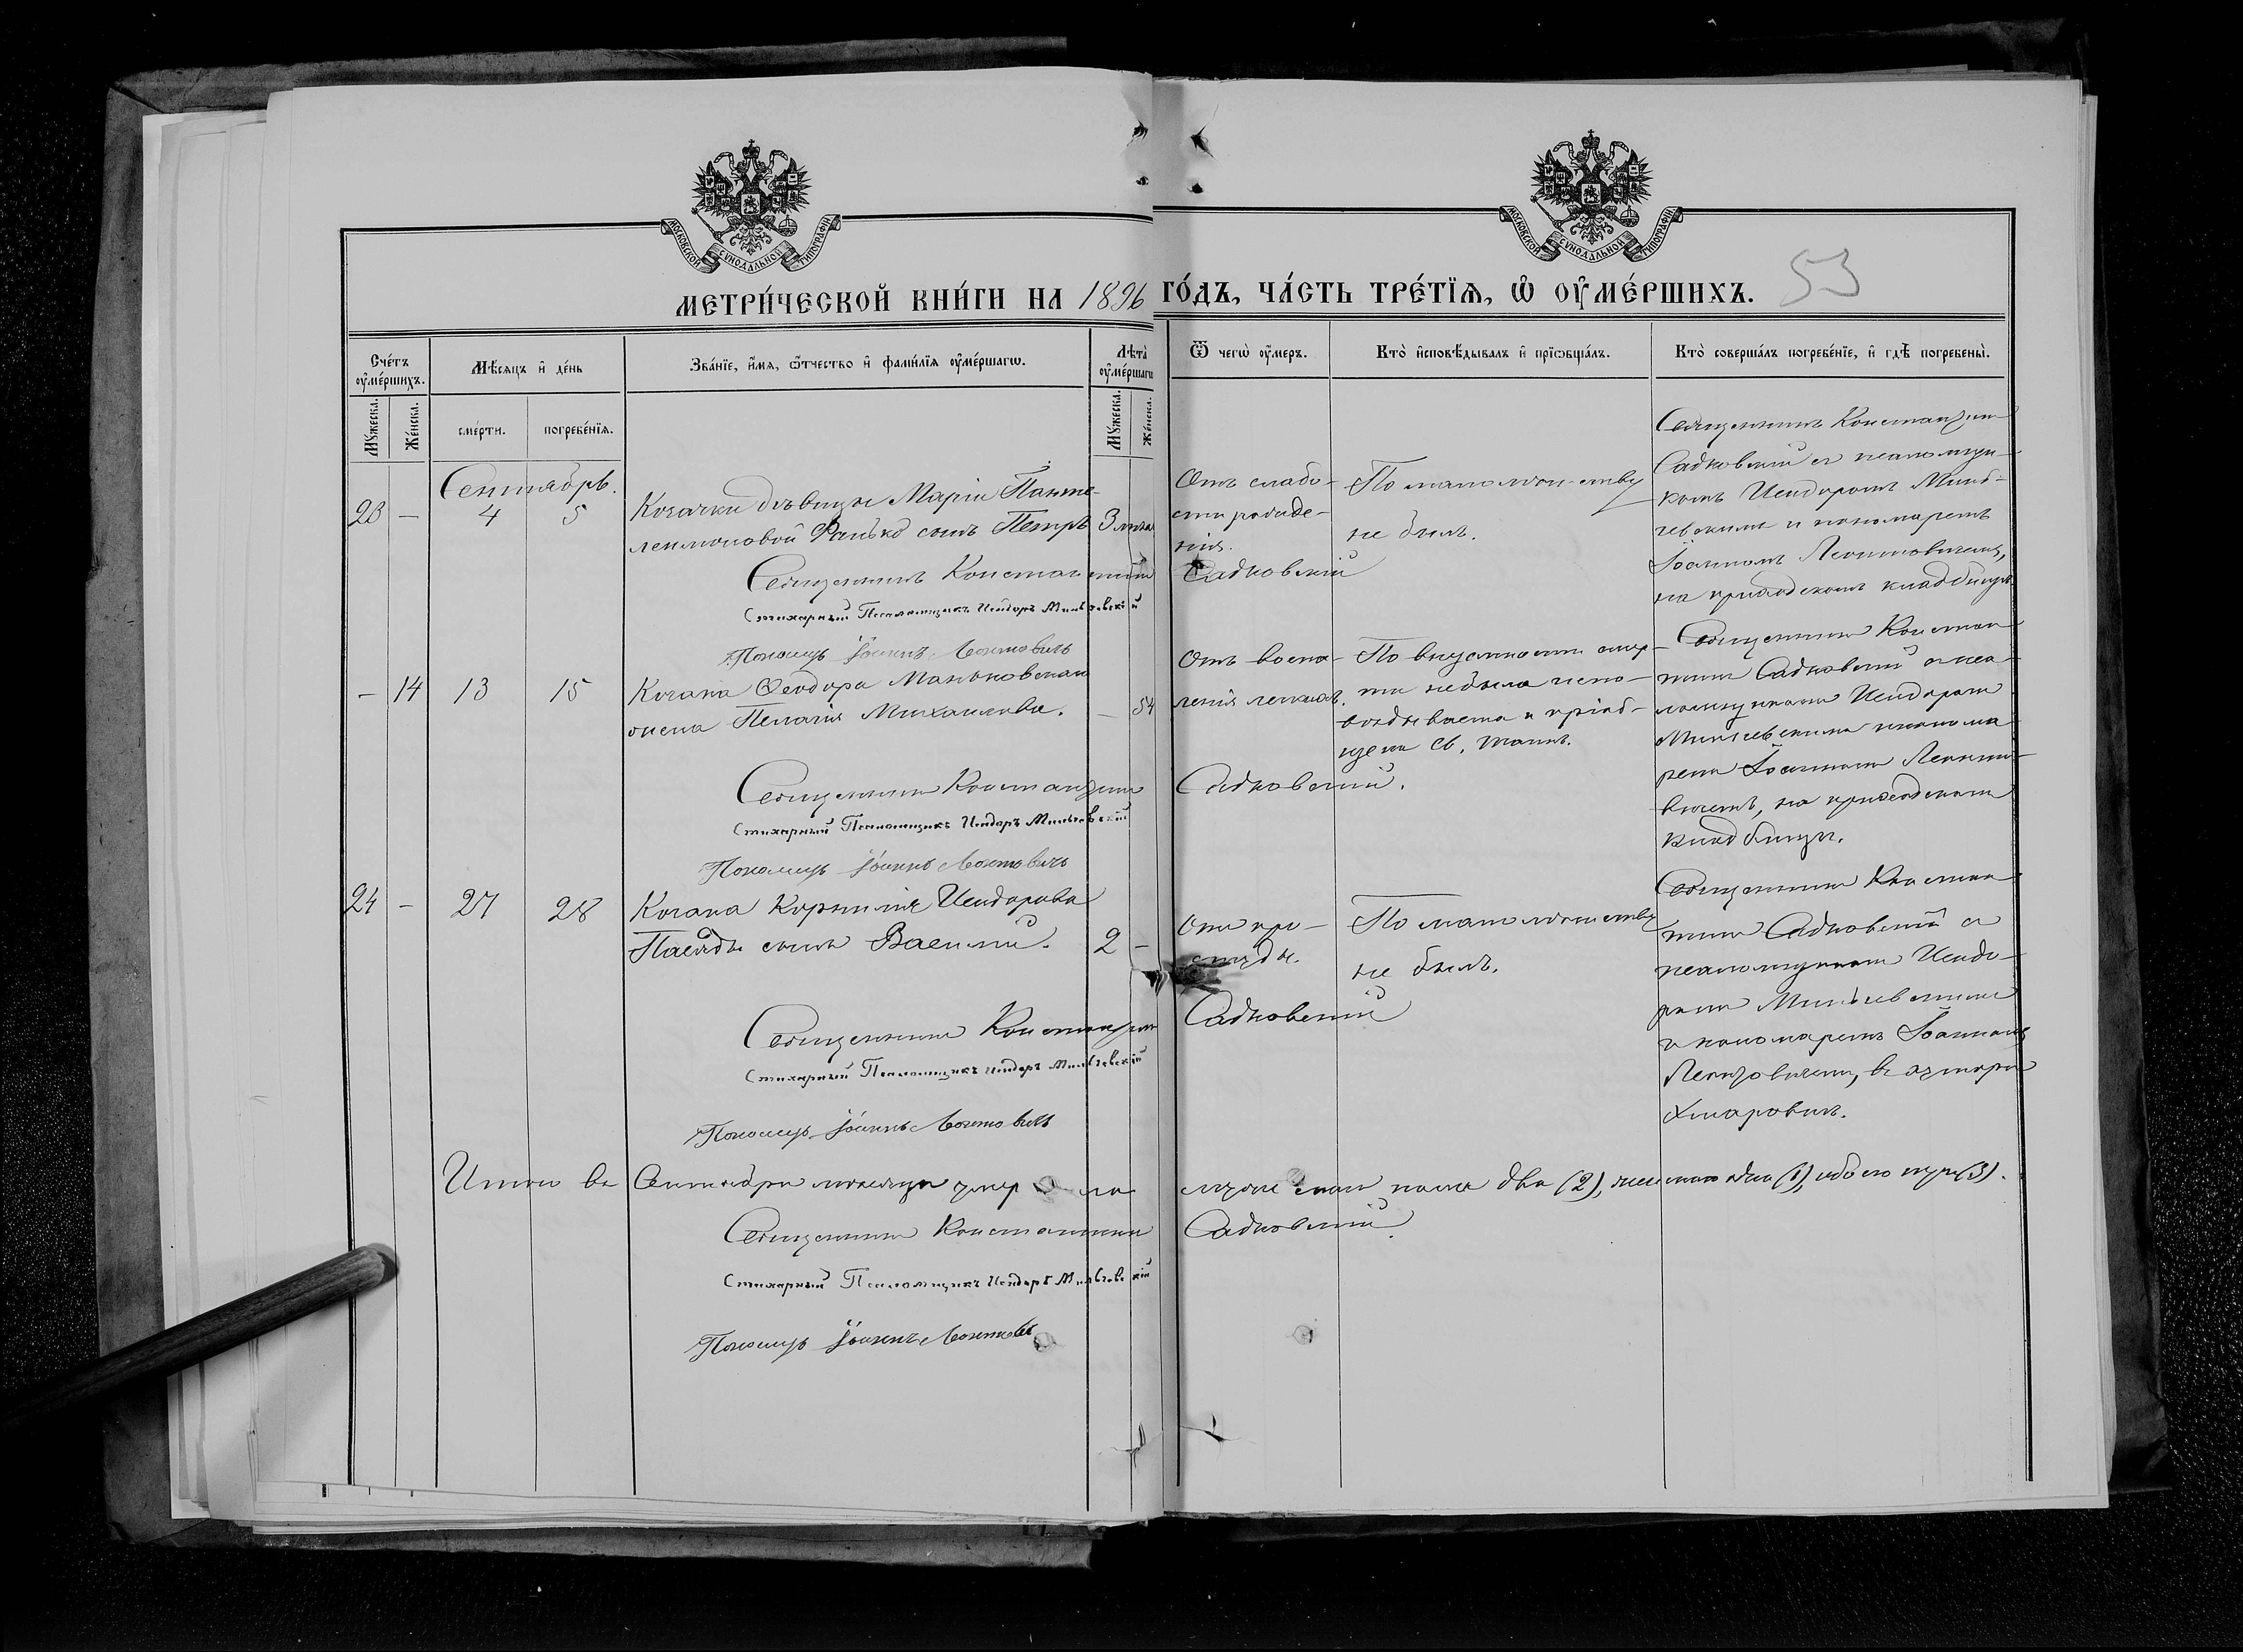 МОСКОВСКОЙ СѴНОДАЛЬНОЙ ТИПОГРАФІИ
МОСКОВСКОЙ СѴНОДАЛЬНОЙ ТИПОГРАФІИ
МЕТРИ́ЧЕСКОЙ КНИ́ГИ НА 1896 ГО́ДЪ, ЧА́СТЬ ТРЕ́ТЇѦ, Ѽ ОУ҆МЕ́РШИХЪ.
53
Сче́тъ оу҆ме́ршихъ.
Мѣ́сяцъ и҆ де́нь
Зва́нїе, и҆́мѧ, ѻ҆́тчество и҆ фами́лїѧ оу҆ме́ршагѡ.
Лѣ́та̀ оу҆ме́ршагѡ
Ѿ чегѡ̀ оу҆́меръ.
Кто̀ и҆сповѣ́дывалъ и҆ прїѡбща́лъ.
Кто̀ соверша́лъ погребе́нїе, и҆ гдѣ̀ погребены̀.
Мꙋ́жеска.
Же́нска.
сме́рти.
погребе́нїѧ.
Мꙋ́жеска.
Же́нска.
Сентябрь.
23 — 4 5
Козачки дѣвицы Маріи Панте-
леимоновой Фанько сынъ Петръ
Отъ слабо-
сти рожде-
нія.
По малолѣтству
не былъ.
Священникъ Константинъ
Садковскій съ псаломщи-
комъ Исидоромъ Миль-
чевскимъ и пономаремъ
Іоанномъ Леонтовичемъ,
на приходскомъ кладбищѣ.
Священникъ Константинъ Садковскій
Стихарный Псаломщикъ Исидоръ Мильчевскій
Пономарь Іоаннъ Леонтовичъ
— 14 13 15
Козака Ѳеодора Маньковскаго
жена Пелагія Михаилова.
— 54
Отъ воспа-
ленія легкихъ.
По внезапности смер-
ти не была испо-
вѣдываема и пріоб-
щена Св. Таинъ.
Священникъ Констан-
тинъ Садковскій съ пса-
ломщикомъ Исидоромъ
Мильчевскимъ и понома-
ремъ Іоанномъ Леонто-
вичемъ, на приходскомъ
кладбищѣ.
Священникъ Константинъ Садковскій.
Стихарный Псаломщикъ Исидоръ Мильчевскій
Пономарь Іоаннъ Леонтовичъ
24 — 27 28
Козака Корнилія Исидорова
сынъ Василій.
2 —
Отъ про-
студы.
По малолѣтству
не былъ.
Священникъ Констан-
тинъ Садковскій съ
псаломщикомъ Исидо-
ромъ Мильчевскимъ
и пономаремъ Іоанномъ
Леонтовичемъ, въ
Священникъ Константинъ Садковскій
Стихарный Псаломщикъ Исидоръ Мильчевскій
Пономарь Іоаннъ Леонтовичъ
Итого въ Сентябрѣ мѣсяцѣ умерло мужескаго пола два (2), женскаго одна (1), обоего три (3).
Священникъ Константинъ Садковскій.
Стихарный Псаломщикъ Исидоръ Мильчевскій
Пономарь Іоаннъ Леонтовичъ